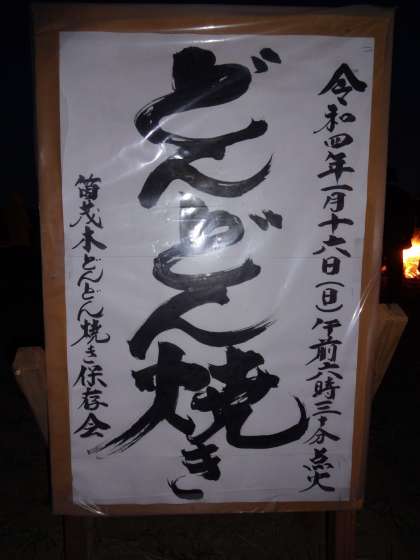 令和四年一月十六日(日)午前六時三十分点火
どんどん焼き
苗茂木どんどん焼き保存会